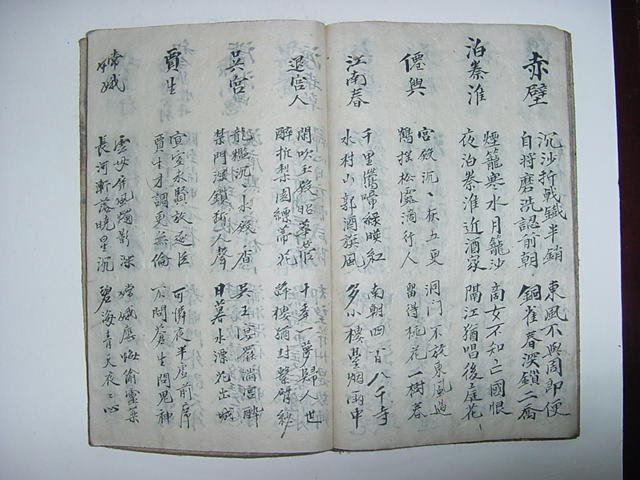 赤壁
沉沙折戟鐵半銷 東風不與周郎便
自將磨洗認前朝 銅雀春深鎖二喬
泊秦淮
煙籠寒水月籠沙 商女不知亡國恨
夜泊秦淮近酒家 隔江猶唱後庭花
僊興
宮殿沉〻秋五更 洞门不放東風過
鶴撲松露滴行人 留得桃花一樹春
江南春
千里鶯啼綠映紅 南朝四百八十寺
水村山郭酒旗風 多少樓臺烟雨中
退宮人
開吹玉殿昭華管 十年一夢歸人世
醉折梨園縹蒂花 絳縷猶封繫臂紗
吳宮
龍檻沉〻水殿香 吳王宴罷滿宮醉
禁門深鎖斷人聲 日暮水漂花出城
賈生
宣室求賢放逐臣 可憐夜半虛前席
賈生才調更無倫 不問蒼生問鬼神
常娥
雲母屏風燭影深 嫦娥應悔偷靈藥
長河漸落曉星沉 碧海青天夜〻心